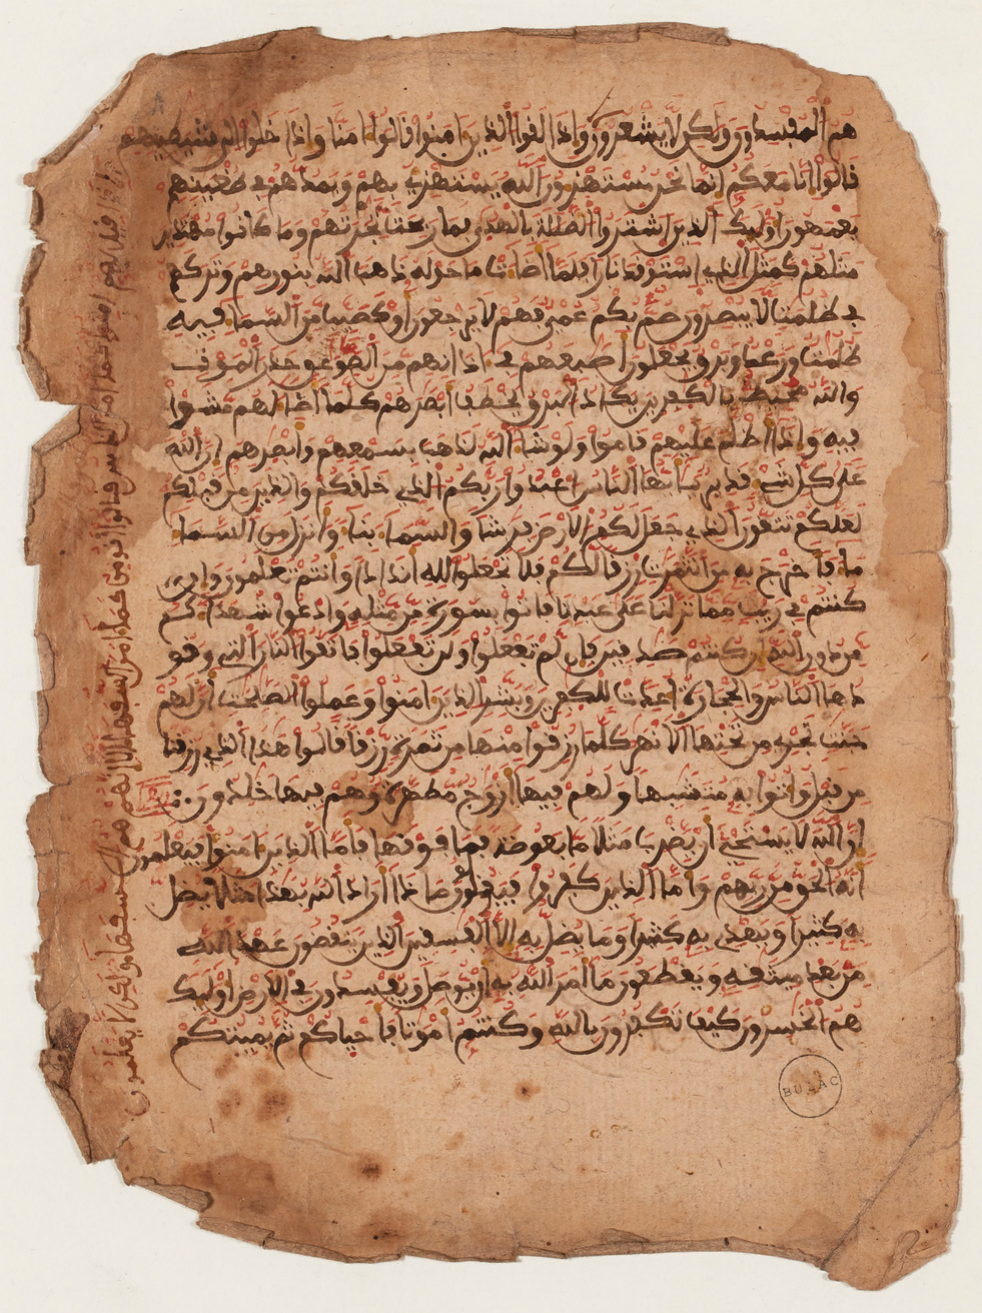 هم المفسدون ولكن لا يشعرون واذا لقوا الذين امنوا قالوا امنا واذا خلوا الى شيطينهم
قالوا انا معكم انما نحن مستهزءون الله يستهزئ بهم ويمدهم في طغينهم
يعمهون اوليك الذين اشتروا الضللة بالهدى فما ربحت تجرتهم وما كانوا مهتدين
مثلهم كمثل الذي استوقد نارا فلما اضات ما حوله ذهب الله بنورهم وتركهم
في ظلمت لا يبصرون صم بكم عمي فهم لا يرجعون او كصيب من السما فيه
ظلمت ورعد وبرق يجعلون اصبعهم في اذانهم من الصوعق حذر الموت
والله محيط بالكفرين يكاد البرق يخطف ابصرهم كلما اضا لهم مشوا
فيه واذا اظلم عليهم قاموا ولو شا الله لذهب بسمعهم وابصرهم ان الله
على كل شي قدير يايها الناس اعبدوا ربكم الذي خلقكم والذين من قبلكم
لعلكم تتقون الذي جعل لكم الارض فرشا والسما بنا وانزل من السما
ما فاخرج به من الثمرت رزقا لكم فلا تجعلوا لله اندادا وانتم تعلمون وان
كنتم في ريب مما نزلنا على عبدنا فاتوا بسورة من مثله وادعوا شهداكم
من دون الله ان كنتم صدقين فان لم تفعلوا ولن تفعلوا فاتقوا النار التي وقو
دها الناس والحجارة اعدت للكفرين وبشر الذين امنوا وعملوا الصلحت ان لهم
جنت تجري من تحتها الانهر كلما رزقوا منها من ثمرة رزقا قالوا هذا الذي رزقنا
من قبل واتوا به متشبها ولهم فيها ازوج مطهرة وهم فيها خلدون
ان الله لا يستحي ان يضرب مثلا ما بعوضة فما فوقها فاما الذين امنوا فيعلمون
انه الحق من ربهم واما الذين كفروا فيقولون ماذا اراد الله بهذا مثلا يضل
به كثيرا ويهدي به كثيرا وما يضل به الا الفسقين الذين ينقضون عهد الله
من بعد ميثقه ويقطعون ما امر الله به ان يوصل ويفسدون في الارض اوليك
هم الخسرون كيف تكفرون بالله وكنتم اموتا فاحياكم ثم يميتكم
واذا قيل لهم امنوا كما امن الناس قالوا انومن كما امن السفها الا انهم هم السفها ولكن لا يعلمون
BULAC